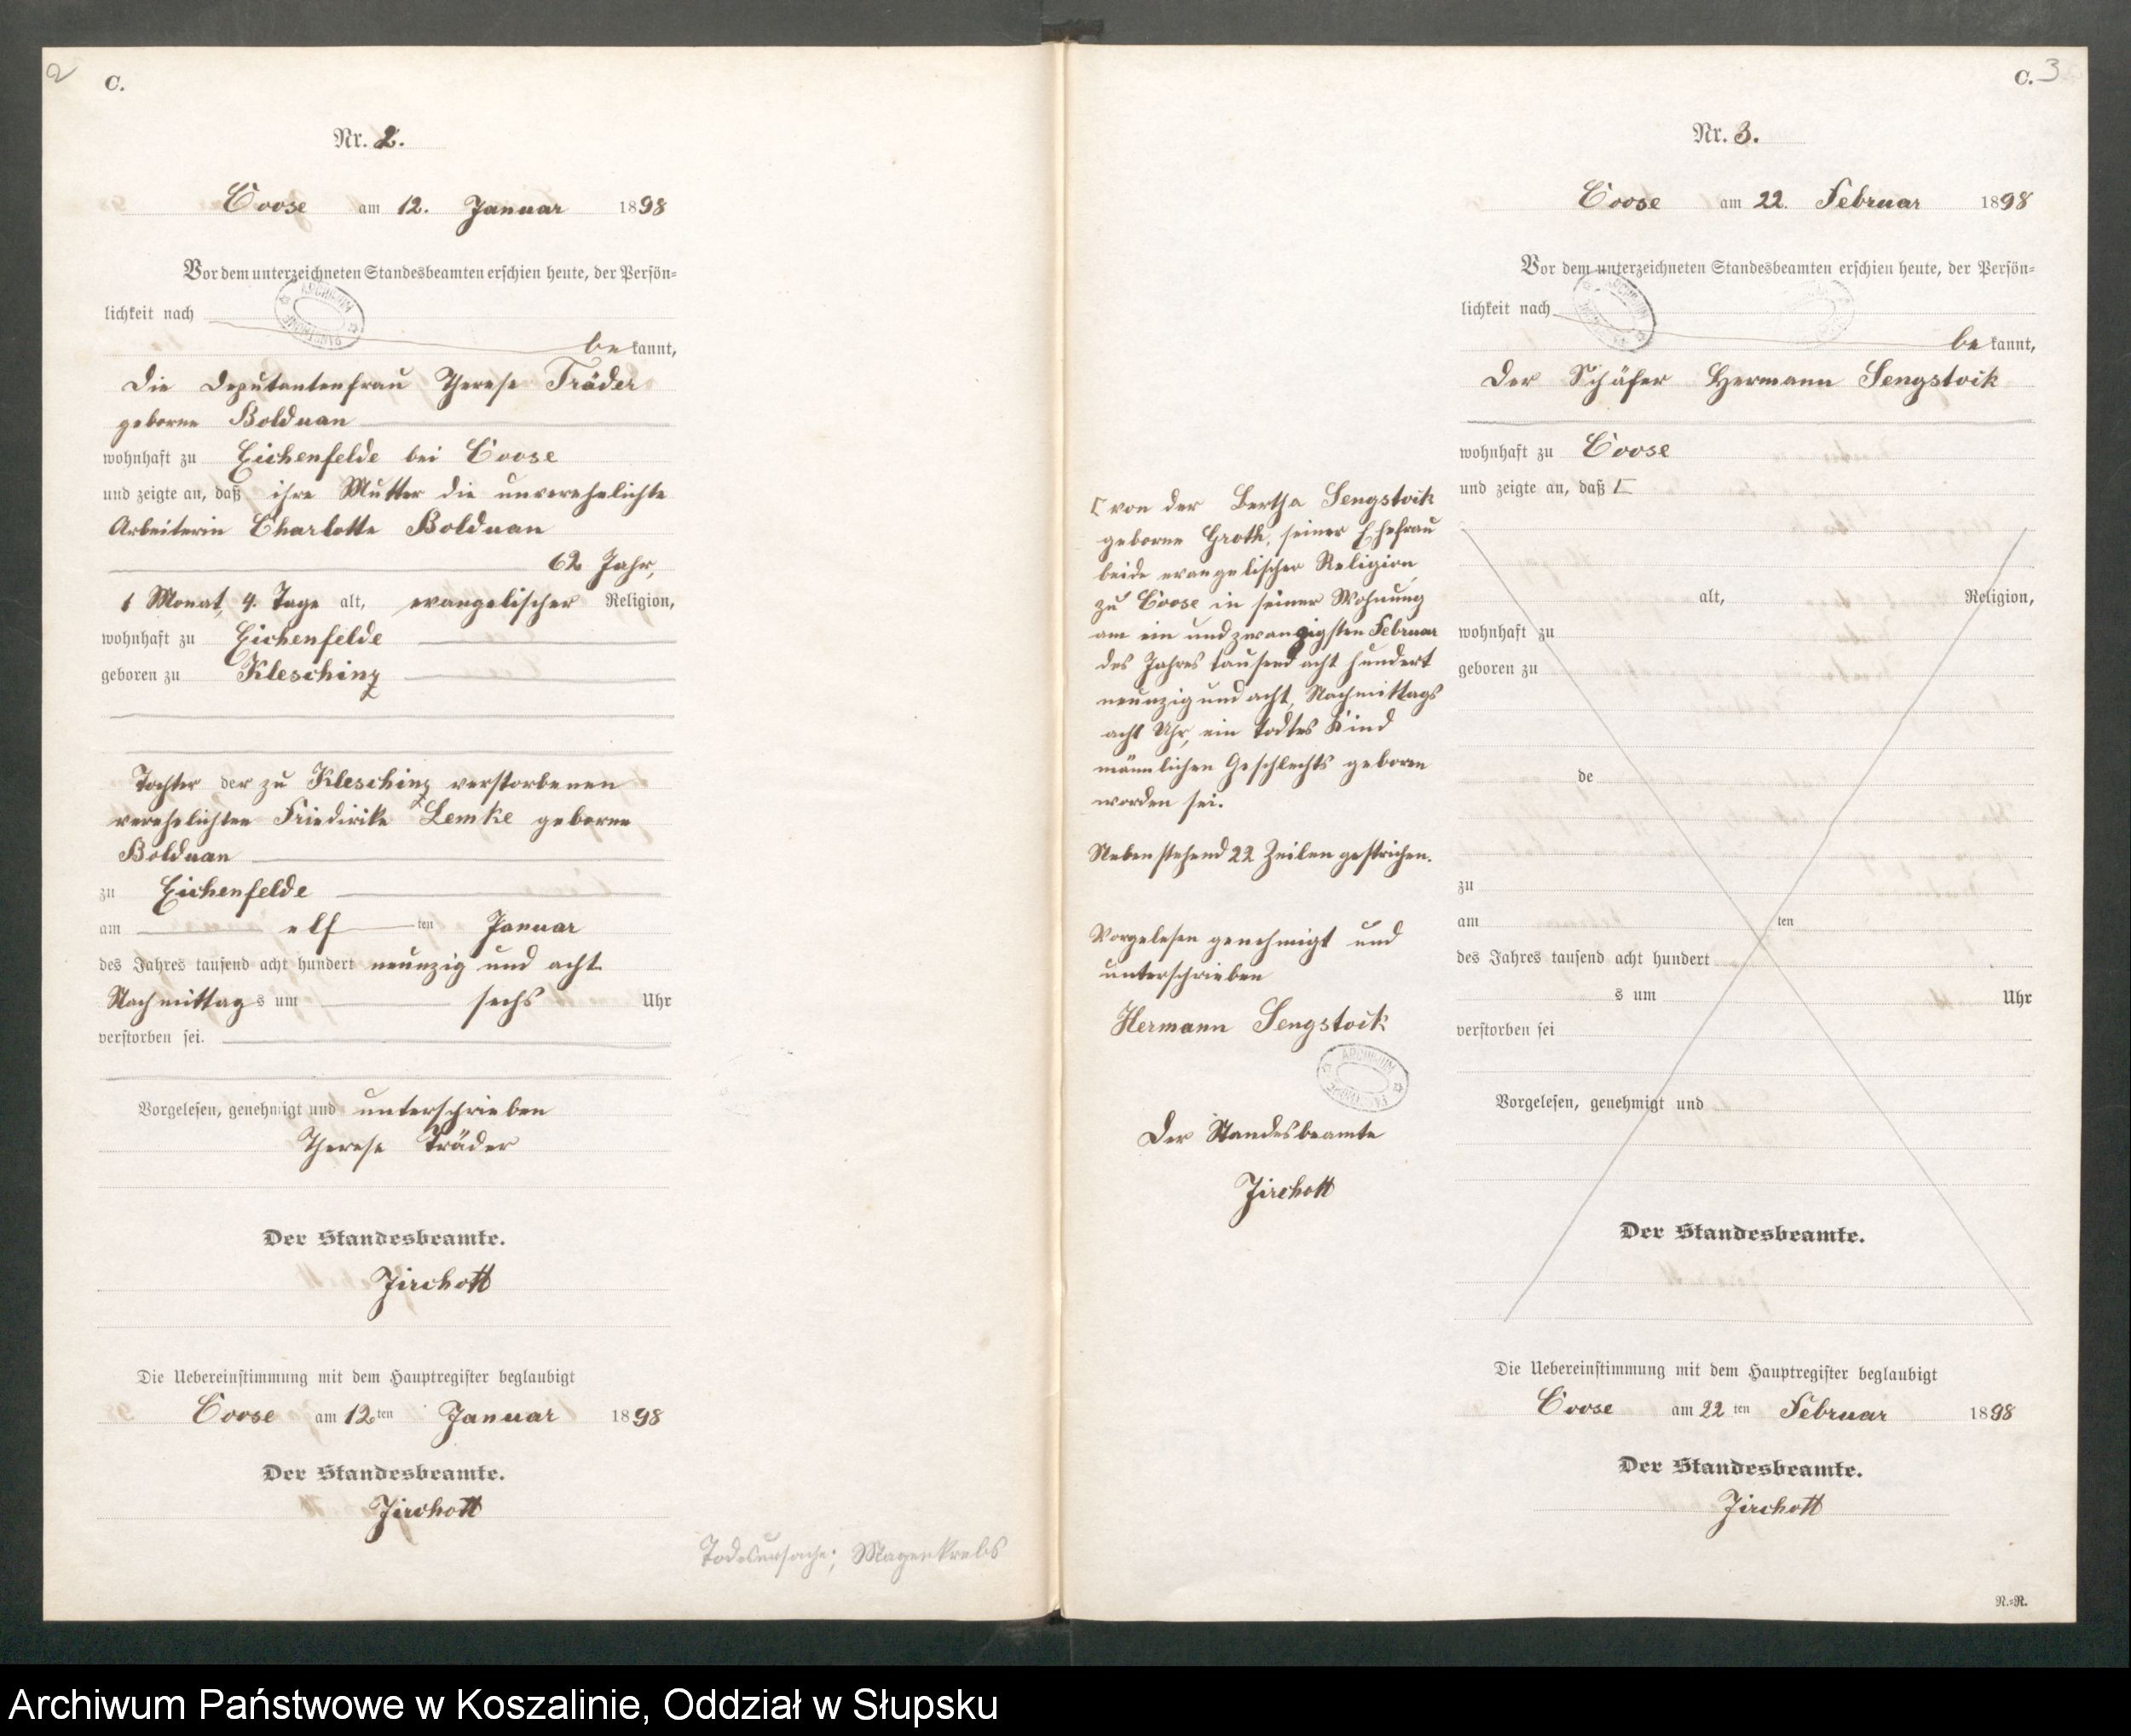 2
C.
Nr. 2.
Coose am 12. Januar 1898
Vor dem unterzeichneten Standesbeamten erschien heute, der Persön-
lichkeit nach
bekannt,
die Deputantenfrau Therese Träder
geborne Bolduan
wohnhaft zu Eichenfelde bei Coose
und zeigte an, daß ihre Mutter die unverehelichte
Arbeiterin Charlotte Bolduan
62 Jahr,
1 Monat, 4. Tage alt, evangelischer Religion,
wohnhaft zu Eichenfelde
geboren zu Kleschinz
Tochter der zu Kleschinz verstorbenen
verehelichten Friedirike Lemke geborne
Bolduan
zu Eichenfelde
am elf ten Januar
des Jahres tausend acht hundert neunzig und acht
Nachmittags um sechs Uhr
verstorben sei.
Vorgelesen, genehmigt und unterschrieben
Therese Träder
Der Standesbeamte.
Zirchott
Die Uebereinstimmung mit dem Hauptregister beglaubigt
Coose am 12.ten Januar 1898
Der Standesbeamte.
Zirchott
Todesursache; Magenkrebs
C. 3
Nr. 3.
Coose am 22. Februar 1898
Vor dem unterzeichneten Standesbeamten erschien heute, der Persön-
lichkeit nach
bekannt,
der Schäfer Hermann Sengstock
wohnhaft zu Coose
und zeigte an, daß [
[ von der Bertha Sengstock
geborne Groth, seiner Ehefrau
beide evangelischer Religion,
zu Coose in seiner Wohnung
am ein und zwanzigsten Februar
des Jahres tausend acht hundert
neunzig und acht, Nachmittags
acht Uhr, ein todtes Kind
männlichen Geschlechts geboren
worden sei.
Nebenstehend 22 Zeilen gestrichen.
Vorgelesen genehmigt und
unterschrieben
Hermann Sengstock
ARCHIWUM PAŃSTWOWE
Der Standesbeamte
Zirchott
alt, Religion,
wohnhaft zu
geboren zu
de
zu
am ten
des Jahres tausend acht hundert
s um Uhr
verstorben sei
Vorgelesen, genehmigt und
Der Standesbeamte.
Die Uebereinstimmung mit dem Hauptregister beglaubigt
Coose am 22 ten Februar 1898
Der Standesbeamte.
Zirchott
N.=R.
Archiwum Państwowe w Koszalinie, Oddział w Słupsku